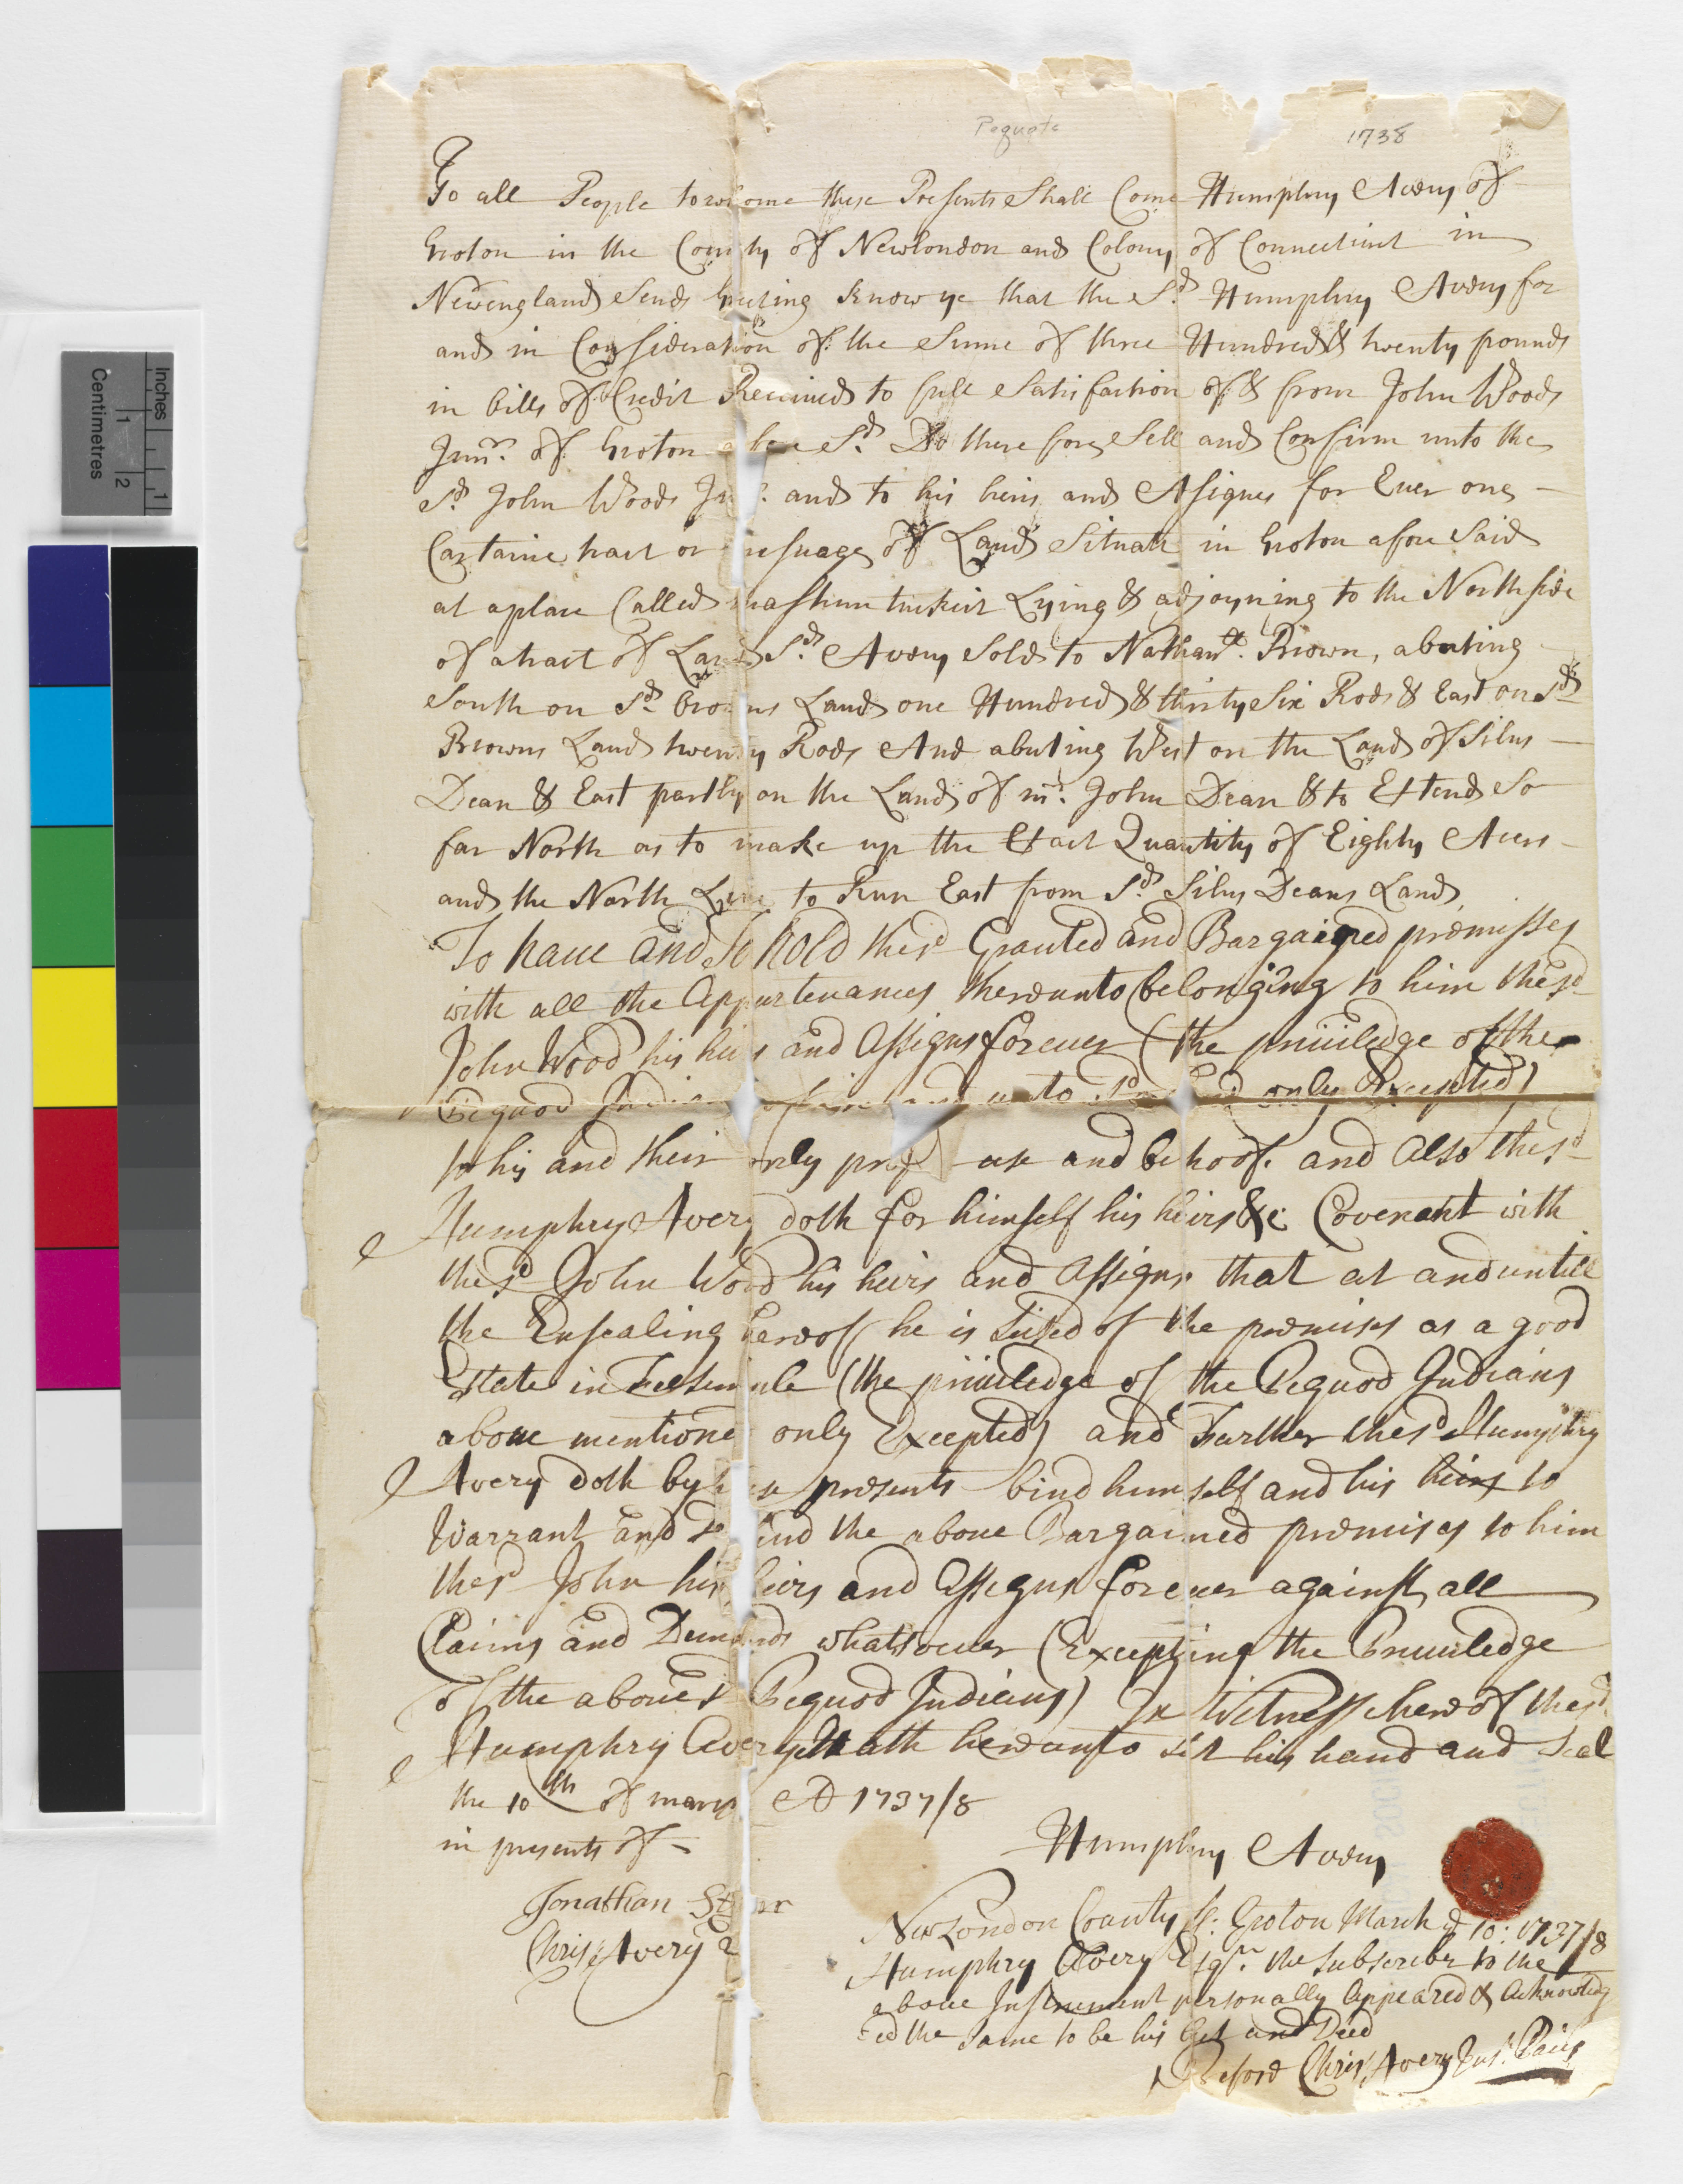 Pequots
1738
To all People to whome these Presents Shall Come Humphry Avery of
Groton in the County of Newlondon and Colony of Connecticut in
Newengland Sends Greeting Know ye that the Sd. Humphry Avery for
and in Consideration of the Sume of three Hundred & twenty pounds
in bills of Credit Received to full Satisfaction of & from John Woods
Junr. of Groton afore Sd. Do therefore Sell and Confirm unto the
Sd. John Woods Junr. and to his heirs and Assignes for Ever one
Cartaine tract or messuage of Land Situate in Groton afore Said
at a place Called mashuntuckset Lying & adjoyning to the North side
of a tract of Land Sd. Avery Sold to Nathanll. Brown, abuting
South on Sd. Browns Land one Hundred & thirty Six Rods & East on Sd.
Browns Land twenty Rods And abuting West on the Land of Silus
Dean & East partly on the Land of mr. John Dean & to Extend So
far North as to make up the Exact Quantity of Eighty Acers
and the North Line to Run East from Sd. Silus Deans Land
To have and to hold the sd Granted and Bargained premisses
with all the Appurtenances thereunto belonging to him the sd
John Wood his heirs and Assigns forever (the priviledge of the
Pequod only Excepted)
to his and their only use and behoof. and Also the sd
Humphry Avery doth for himself his heirs &c Covenant with
the sd John Wood his heirs and Assigns that at and untill
the Ensealing hereof he is Seised of the premises as a good
Estate in Feesimple (the priviledge of the Pequod Indians
above mentioned only Excepted) and Further the sd Humphry
Avery doth by these presents bind himself and his heirs to
Warrant and defend the above Bargained premises to him
the sd John his heirs and Assigns forever against all
Claims and Demands whatsoever (Excepting the Priviledge
of the above sd Pequod Indians) In Witness hereof the sd
Humphry Avery Hath hereunto set his hand and Seal
the 10th of march AD 1737/8
in presents of
Humphry Avery
Jonathan Starr
Chrisr Avery 2
New London County ss: Groton March ye 10: 1737/8
Humphry Avery Esqr. the Subscriber to the
above Instrument personally Appeared & Acknowledg
ed the Same to be his Act and Deed
Before Chrisr Avery Just. Pacis